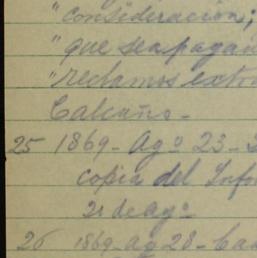 "consideración;
"que sea pagan
"reclamos extra
Calcaño-
25 1869- Agº 23-
copia del Infor
21 de agº
26 1869- ag 28-